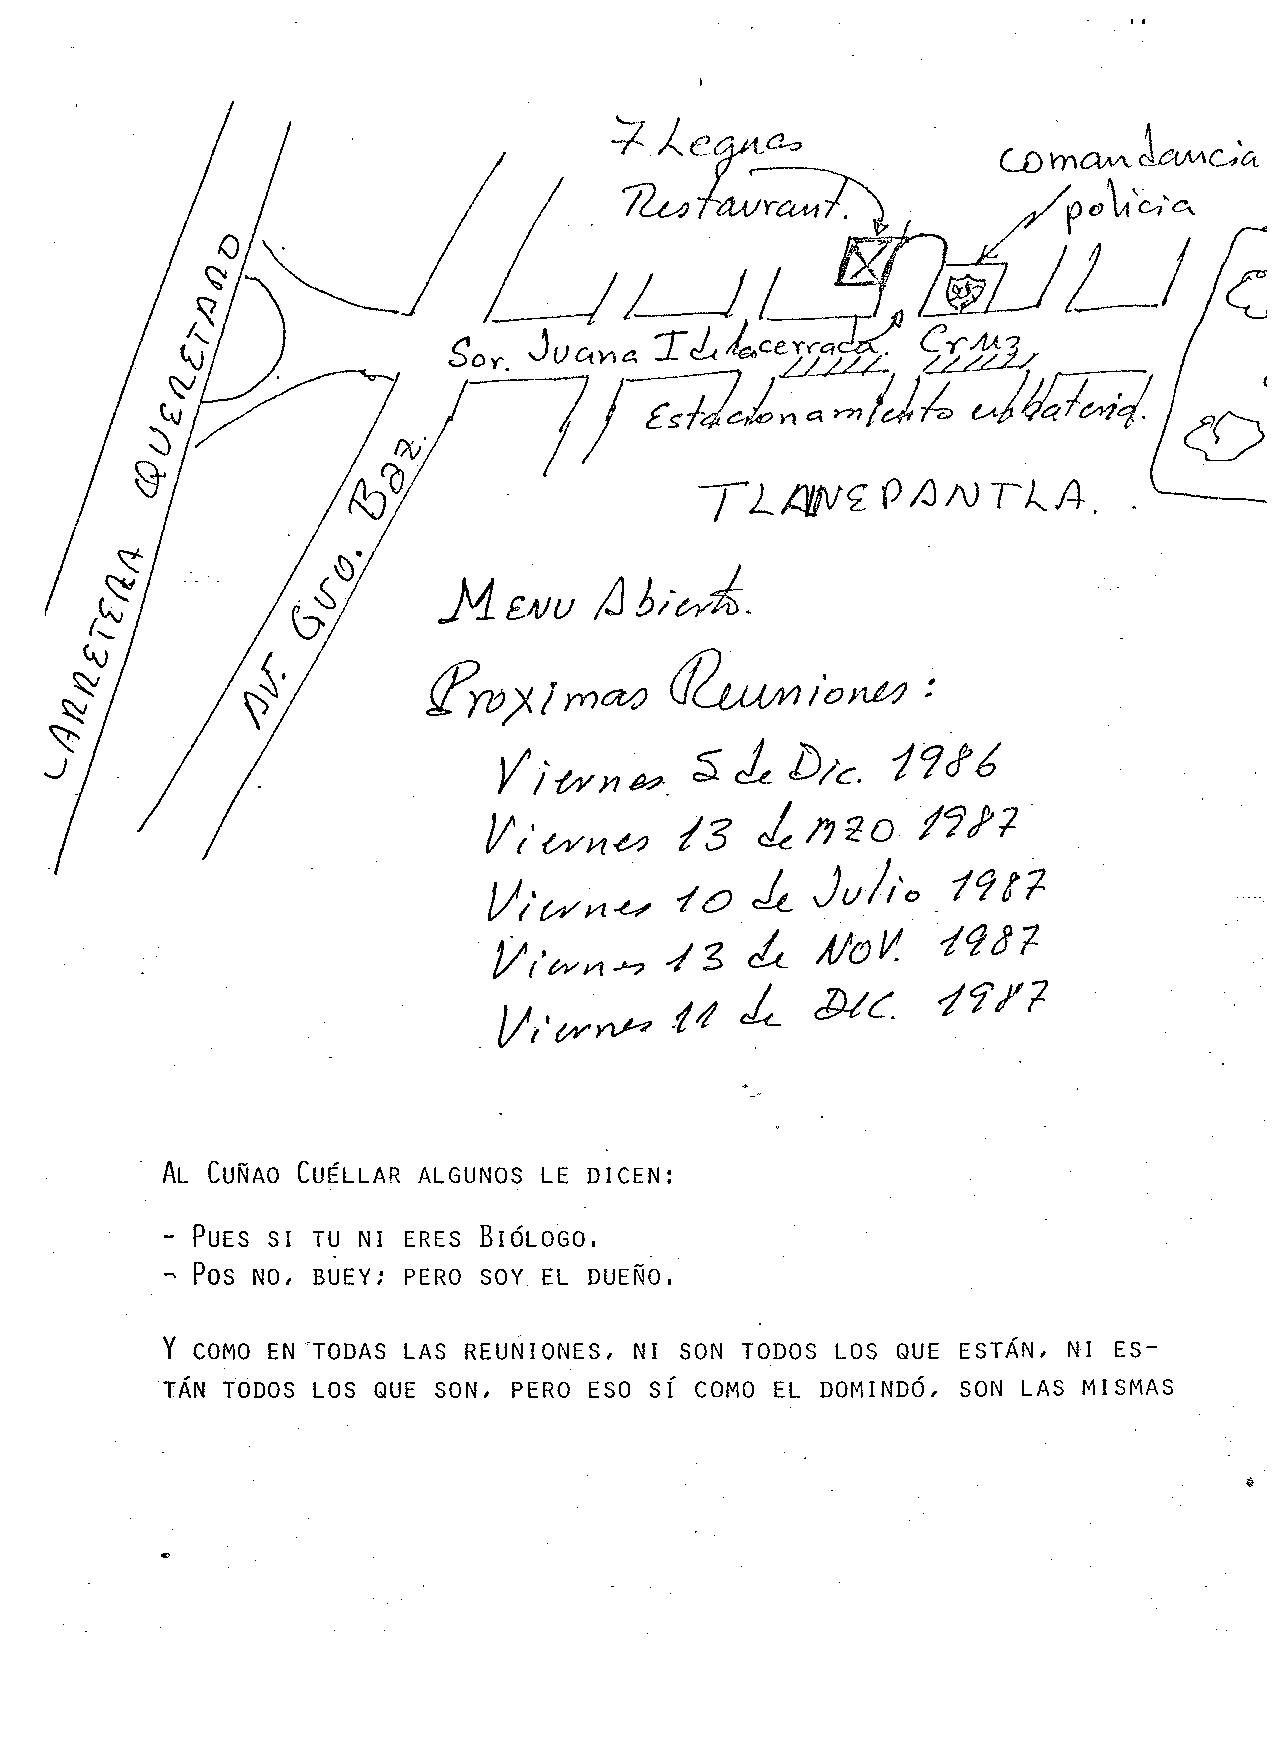 7 Leguas
Restaurant.
comandancia
policia
Sor. Juana I de la Cruz
cerrada.
Estacionamiento en bateria.
TLANEPANTLA.
CARRETERA QUERETARO
AV. Gvo. Baz.
MENU Abierto.
Proximas Reuniones:
Viernes 5 de Dic. 1986
Viernes 13 de MZO 1987
Viernes 10 de Julio 1987
Viernes 13 de NOV. 1987
Viernes 11 de DIC. 1987
AL CUÑAO CUÉLLAR ALGUNOS LE DICEN:
- PUES SI TU NI ERES BIÓLOGO.
- POS NO, BUEY; PERO SOY EL DUEÑO.
Y COMO EN TODAS LAS REUNIONES, NI SON TODOS LOS QUE ESTÁN, NI ES-
TÁN TODOS LOS QUE SON, PERO ESO SÍ COMO EL DOMINDÓ, SON LAS MISMAS